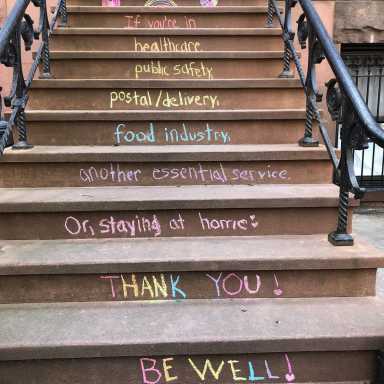 If you're in
healthcare.
public safety.
postal/delivery.
food industry.
another essential service.
Or, staying at home
THANK YOU!
BE WELL!